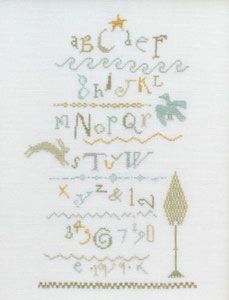 aBCdeF
ghIJKL
mNoPQR
STUVW
xyz&12
34567890